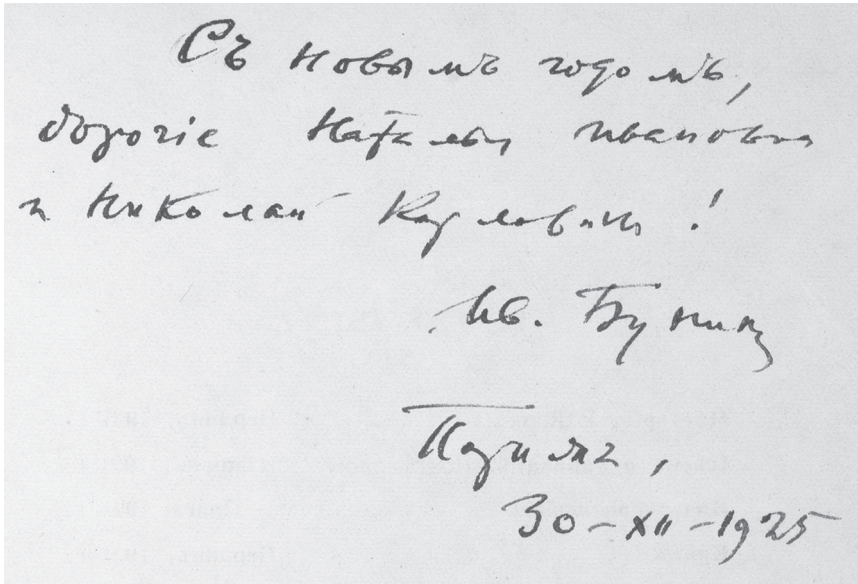 Съ новымъ годомъ,
дорогіе Наталья Ивановна
и Николай Карлович!
Ив. Бунинъ
Парижъ,
30-XII-1925